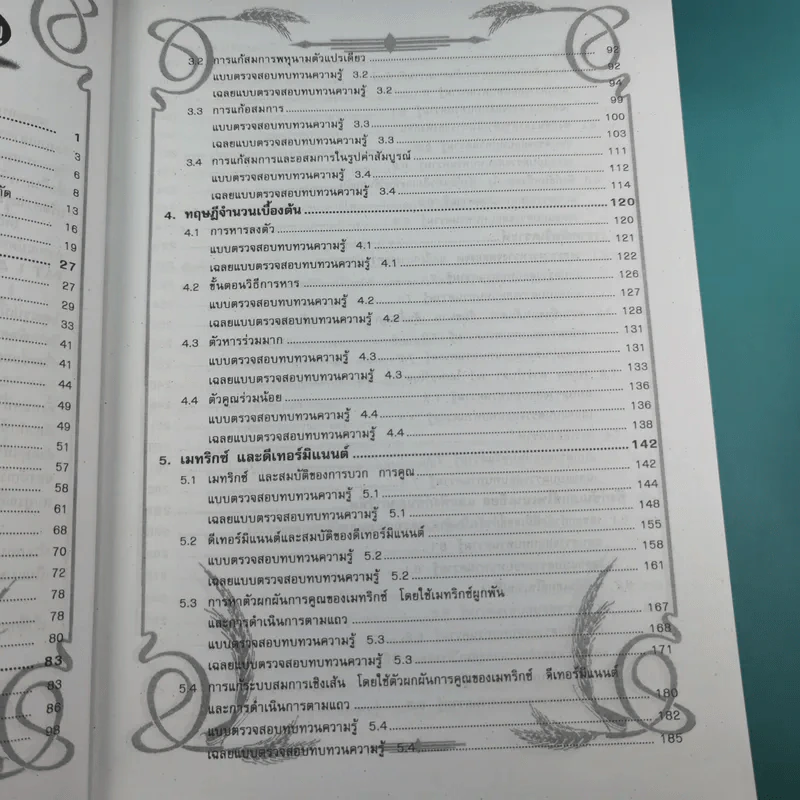 1
3
6
8
13
16
19
27
27
29
33
41
41
44
49
49
51
57
58
61
68
70
72
78
78
80
83
83
86
98
3.2 การแก้สมการพหุนามตัวแปรเดียว 92
แบบตรวจสอบทบทวนความรู้ 3.2 92
เฉลยแบบตรวจสอบทบทวนความรู้ 3.2 94
3.3 การแก้อสมการ 99
แบบตรวจสอบทบทวนความรู้ 3.3 100
เฉลยแบบตรวจสอบทบทวนความรู้ 3.3 103
3.4 การแก้สมการและอสมการในรูปค่าสัมบูรณ์ 111
แบบตรวจสอบทบทวนความรู้ 3.4 112
เฉลยแบบตรวจสอบทบทวนความรู้ 3.4 114
4. ทฤษฎีจำนวนเบื้องต้น 120
4.1 การหารลงตัว 120
แบบตรวจสอบทบทวนความรู้ 4.1 121
เฉลยแบบตรวจสอบทบทวนความรู้ 4.1 122
4.2 ขั้นตอนวิธีการหาร 126
แบบตรวจสอบทบทวนความรู้ 4.2 127
เฉลยแบบตรวจสอบทบทวนความรู้ 4.2 128
4.3 ตัวหารร่วมมาก 131
แบบตรวจสอบทบทวนความรู้ 4.3 131
เฉลยแบบตรวจสอบทบทวนความรู้ 4.3 133
4.4 ตัวคูณร่วมน้อย 136
แบบตรวจสอบทบทวนความรู้ 4.4 136
เฉลยแบบตรวจสอบทบทวนความรู้ 4.4 138
5. เมทริกซ์ และดีเทอร์มิแนนต์ 142
5.1 เมทริกซ์ และสมบัติของการบวก การคูณ 142
แบบตรวจสอบทบทวนความรู้ 5.1 144
เฉลยแบบตรวจสอบทบทวนความรู้ 5.1 148
5.2 ดีเทอร์มิแนนต์และสมบัติของดีเทอร์มิแนนต์ 155
แบบตรวจสอบทบทวนความรู้ 5.2 158
เฉลยแบบตรวจสอบทบทวนความรู้ 5.2 161
5.3 การหาตัวผกผันการคูณของเมทริกซ์ โดยใช้เมทริกซ์ผูกพัน
และการดำเนินการตามแถว 167
แบบตรวจสอบทบทวนความรู้ 5.3 168
เฉลยแบบตรวจสอบทบทวนความรู้ 5.3 171
5.4 การแก้ระบบสมการเชิงเส้น โดยใช้ตัวผกผันการคูณของเมทริกซ์ ดีเทอร์มิแนนต์
และการดำเนินการตามแถว 180
แบบตรวจสอบทบทวนความรู้ 5.4 182
เฉลยแบบตรวจสอบทบทวนความรู้ 5.4 185